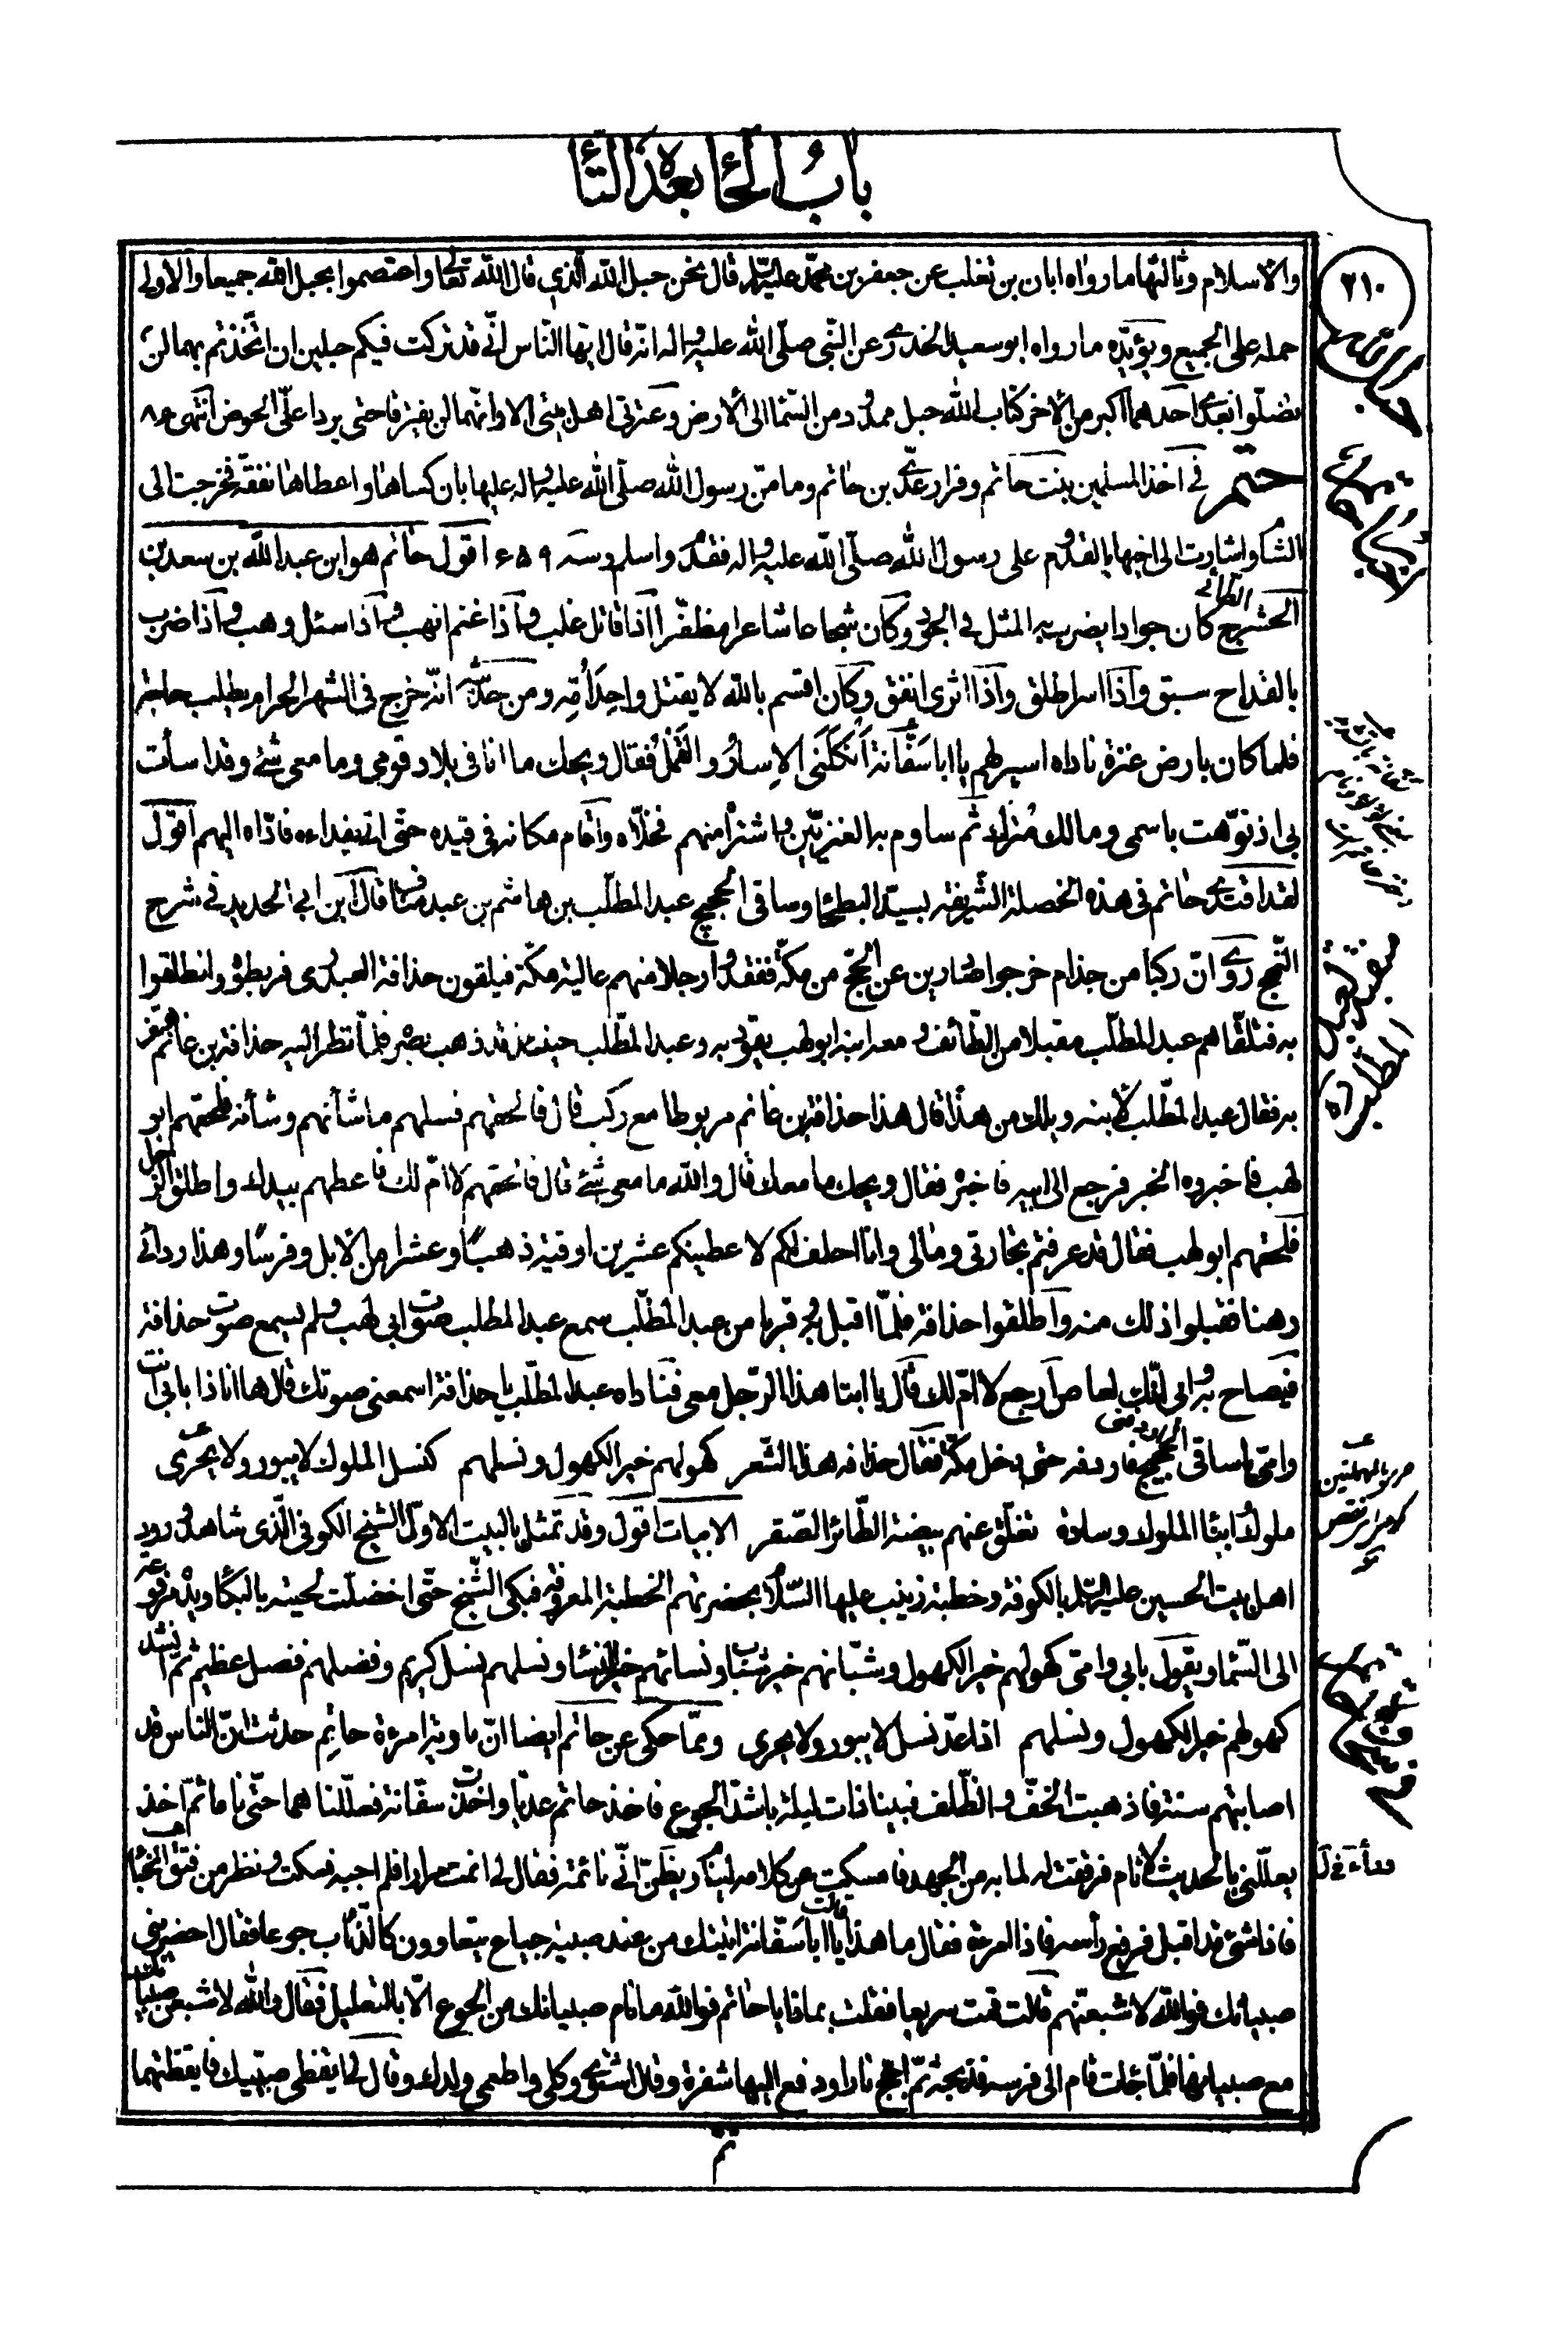 باب الحاء بعده التاء
٢١٠
والاسلام وثالثها ما رواه ابان بن تغلب عن جعفر بن محمّد عليه السّلام قال نحن حبل الله الّذي قال الله تعالى واعتصموا بحبل الله جميعا والاولى
حمله على الجميع ويؤيّده ما رواه ابو سعيد الخدري عن النّبى صلّى الله عليه واله انّه قال ايّها النّاس انّى قد تركت فيكم حبلين ان اتّخذتم بهما لن
تضلّوا بعدى احدهما اكبر من الاخر كتاب الله حبل ممدود من السّماء الى الارض وعترتى اهل بيتى الا وانّهما لن يفترقا حتى يردا علىّ الحوض انتهى
حتم فى اخذ المسلمين بنت حاتم وفرار عدىّ بن حاتم وما منّ رسول الله صلّى الله عليه واله عليها بان كساها واعطاها نفقة فخرجت الى
الشام واشارت الى اخيها بالقدوم على رسول الله صلّى الله عليه واله فقدم واسلم وسه ٩ اقول حاتم هو ابن عبد الله بن سعد بن
الحشرج الطائى كان جوادا يضرب به المثل فى الجود وكان شجاعا شاعرا مظفّرا اذا قاتل غلب واذا غنم انهب واذا سئل وهب واذا ضرب
بالقداح سبق واذا اسر اطلق واذا اثرى انفق وكان اقسم بالله لا يقتل واحد امّه ومن حديثه انّه خرج فى الشهر الحرام يطلب حاجة
فلما كان بارض عنزة ناداه اسير لهم يا ابا سَفّانة اَكَلَنى الاِسارُ والقَمْلُ فقال ويحك ما انا فى بلاد قومى وما معى شئ وقد اسأت
بى اذ نوّهت باسمى ومالك مُترك ثم ساوم به العنزيّين واشتراه منهم فخلّاه واقام مكانه فى قيده حتى اتى بفداءه فادّاه اليهم اقول
لقد اقتدى حاتم فى هذه الخصلة الشّريفة بسيّد البطحاء وساقى الحجيج عبد المطّلب بن هاشم بن عبد مناف قال ابن ابى الحديد فى شرح
النّهج روى انّ ركبا من جذام خرجوا صادرين عن الحجّ من مكّة ففقدوا رجلا منهم عالية مكّة فيلقون حذافة العدوى فربطوه وانطلقوا
به فتلقّاهم عبد المطّلب مقبلا من الطّائف ومعه ابنه ابو لهب يقود به وعبد المطّلب حينئذ قد ذهب بصره فلمّا نظر اليه حذافة بن غانم هتف
به فقال عبد المطّلب لابنه ويلك من هذا قال هذا حذافة بن غانم مربوطا مع ركب قال فالحقهم فسلهم ما شأنهم وشأنه فلحقهم ابو
لهب فاخبروه الخبر فرجع الى ابيه فاخبره فقال ويحك ما معك قال والله ما معى شئ قال فالحقهم لا امّ لك فاعطهم بيدك واطلق الرّجل
فلحقهم ابو لهب فقال قد عرفتم تجارتى ومالى وانا احلف لكم لاعطينكم عشرين اوقية ذهبًا وعشرا من الابل وفرسًا وهذا ردائى
رهنا فقبلوا ذلك منه واطلقوا حذافة فلمّا اقبل به وقربا من عبد المطّلب سمع عبد المطلب صوت ابى لهب ولم يسمع صوت حذافة
فصاح به وابى انّك لعاص ارجع لا امّ لك قال يا ابتا هذا الرّجل معى فناداه عبد المطّلب يا حذافة اسمعنى صوتك قال ها انا ذا بابى انت
وامّى يا ساقى الحجيج اردفنى فاردفه حتى دخل مكّة فقال حذافه هذا الشّعر كهولهم خير الكهول ونسلهم كنسل الملوك لا يبور ولا يحرى
ملوك وابناء الملوك وسادة تفلّق عنهم بيضة الطّائر الصّقر الابيات اقول وقد تمثل بالبيت الاوّل الشّيخ الكوفى الّذى شاهد ورود
اهل بيت الحسين عليه السّلام بالكوفة وخطبة زينب عليها السّلام بحضرتهم الخطبة المعروفة فبكى الشّيخ حتّى اخضلّت لحيته بالبكاء ويده مرفوعة
الى السّماء ويقول بابى وامّى كهولهم خير الكهول وشبّانهم خير شباب ونسائهم خير النساء ونسلهم نسل كريم وفضلهم فضل عظيم ثمّ انشد
كهولهم خير الكهول ونسلهم اذا عدّ نسل لا يبور ولا يحرى وممّا حكى عن حاتم ايضا انّ ماوية امرءة حاتم حدثت انّ الناس قد
اصابتهم سنة فاذهبت الخفّ والظّلف فبتنا ذات ليلة باشدّ الجوع فاخذ حاتم عديّا واخذت سفّانة فعلّلناهما حتّى ناما ثمّ اخذ
يعلّلنى بالحديث لانام فرققت له لما به من الجهد فامسكت عن كلامه لينام ويظنّ انّى نائمة فقال لى انمت مرارا فلم اجبه فسكت ونظر من فتق الخباء
فاذا شئ قد اقبل فرفع رأسه فاذا امرءة فقال ما هذا قالت يا ابا سَفّانة اتيتك من عند صبية جياع يتعاوون كالذّئاب جوعا فقال احضرينى
صبيانك فوالله لاشبعنّهم قالت فقمت سريعا فقلت بماذا يا حاتم فوالله ما نام صبيانك من الجوع الّا بالتعليل فقال والله لاشبعن صبيانك
مع صبيانها فلمّا جائت قام الى فرسه فذبحه ثمّ اجّج نارا ودفع اليها شفرة وقال اشتوى وكلى واطعمى ولدك وقال لى ايقظى صبيّيك فايقظتهما
ثم